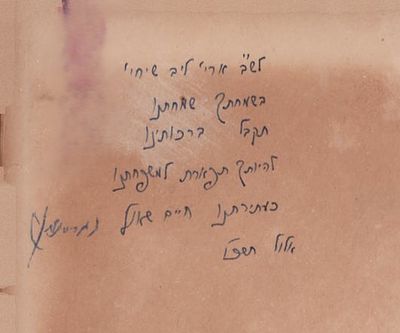 לש"ב ארי' ליב שיחי'
בשמחתך שמחתנו
תקבל ברכותינו
להיותך תפארת למשפחתנו
כעתירתנו חיים שאול
אלול תשט"ו